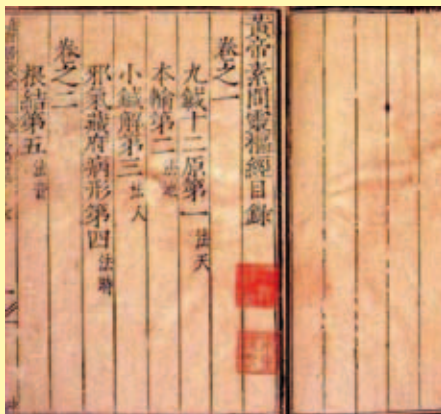 黃帝素問靈樞經目錄
卷之一
九鍼十二原第一 法天
本輸第二 法地
小鍼解第三 法人
邪氣藏府病形第四 法時
卷之二
根結第五 法音